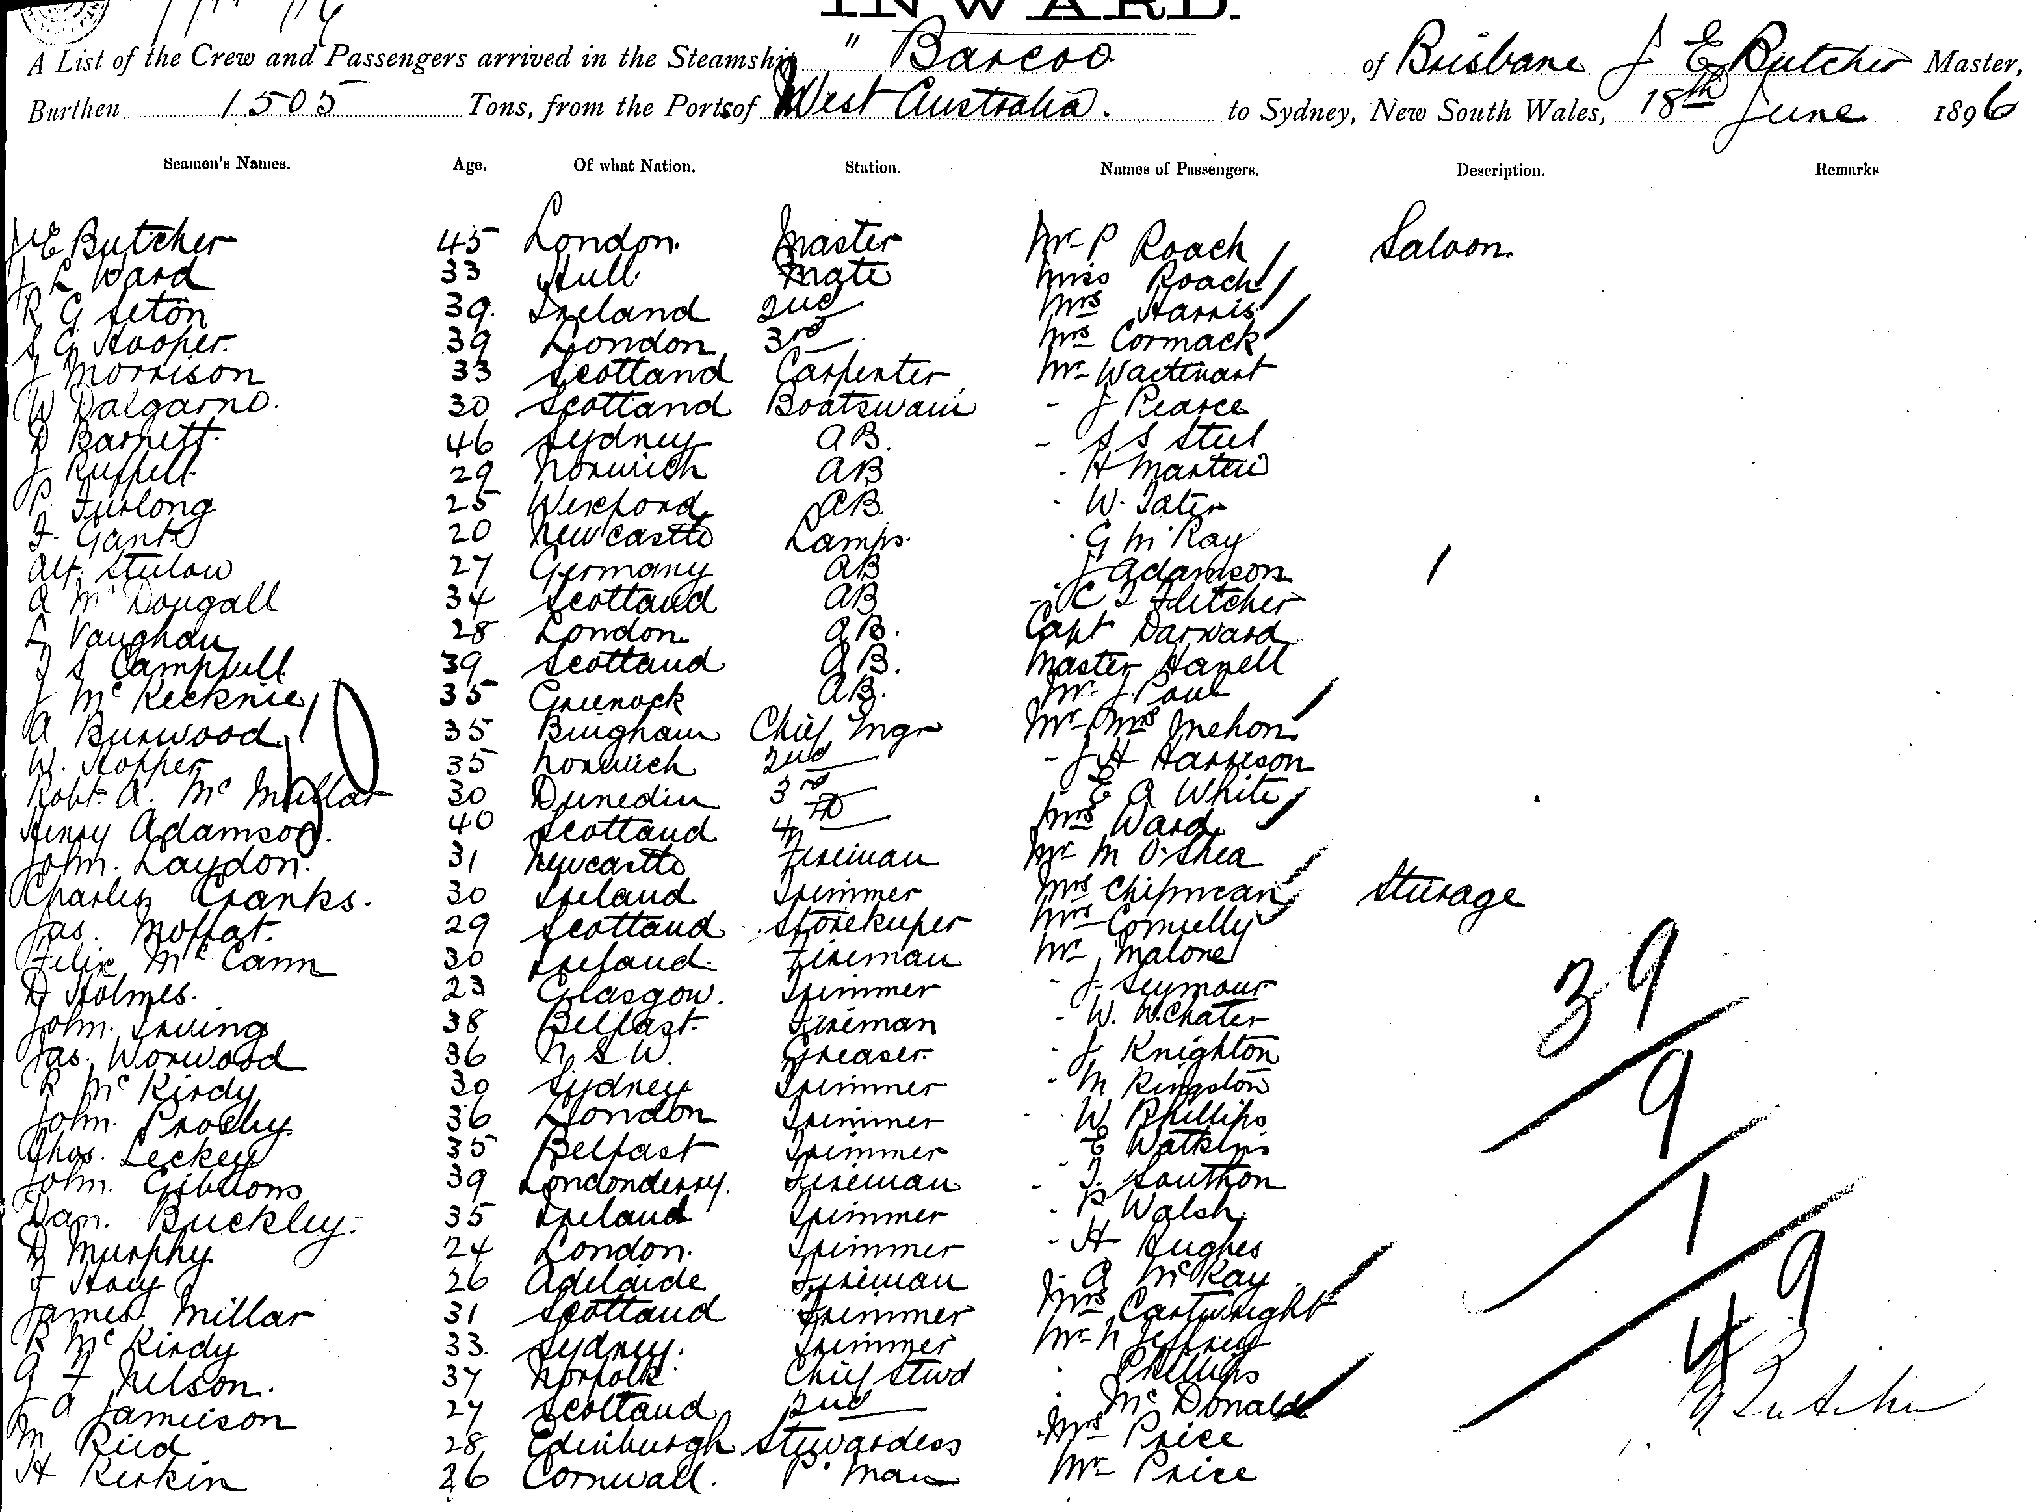 INWARD.
A List of the Crew and Passengers arrived in the Steamship " Barcoo of Brisbane J E Butcher Master,
Burthen 1505 Tons, from the Ports of West Australia. to Sydney, New South Wales, 18th June 1896
Seamen's Names. Age. Of what Nation. Station. Names of Passengers. Description. Remarks
J E Butcher 45 London. Master Mr P Roach / Saloon.
J L Ward 33 Hull Mate Miss Roach /
R G Seton 39. Ireland 2nd Mrs Harris /
S G Hooper. 39 London 3rd Mrs Cormack /
J Morrison 33 Scotland Carpenter Mr
W Dalgarno. 30 Scotland Boatswain - J Pearce
D Barnett. 46 Sydney AB. - S S Steel
J 29 Norwich AB - H Martin
P. Furlong 25 Wexford AB - W. Tater
F. Gant 20 Newcastle Lamps. - G McKay
Alf. 27 Germany AB - J Adamson /
A McDougall 34 Scotland AB - C T Fletcher
L Vaughan 28 London. AB. Capt Darward
J S Campbell 39 Scotland AB. Master Hanell
J McKecknie 35 Greenock AB. Mr J Paul
A Burwood 35 Bingham Chief Engr Mr Mrs Mehon /
W. Hopper 35 Norwich 2nd - J H Harrison
Robt. A. McMillan 30 Dunedin 3rd E A White
Henry Adamson. 40 Scotland 4th Mrs Ward /
John. Laydon. 31 Newcastle Fireman Mr M O'Shea
Charles Cranks. 30 Ireland Trimmer Mrs Chipman / Steerage
Jas. Moffat. 29 Scotland Storekeeper Mrs Connelly /
Felix McCann 30 Ireland. Fireman Mr Malone
D Holmes. 23 Glasgow. Trimmer - J. Seymour
John. Irving 38 Belfast. Fireman - W. W. Chater
Jas. Worwood 36 N S W. Greaser. - J Knighton
R McKirdy 30 Sydney Trimmer - M Kingston
John. 36 London Trimmer - W Phillips
Thos. Leckey 35 Belfast Trimmer - E Watkins
John. Gibbons 39 Londonderry. Fireman - T. Southon
Dan. Buckley. 35 Ireland Trimmer - P Walsh
D Murphy 24 London. Trimmer - H Hughes
F Hoey 26 Adelaide Fireman - A McKay
James Millar 31 Scotland Trimmer Mrs Cartwright /
R McKirdy 33. Sydney. Trimmer Mr N Jeffrey
G F Nelson. 37 Norfolk. Chief Stwd - Phillips
J A Jamieson 27 Scotland 2nd - McDonald /
M Reid 28 Edinburgh Stewardess Mrs Price
H Kerkin 26 Cornwall. P. Man Mr Price
39
9
1
49
Butcher